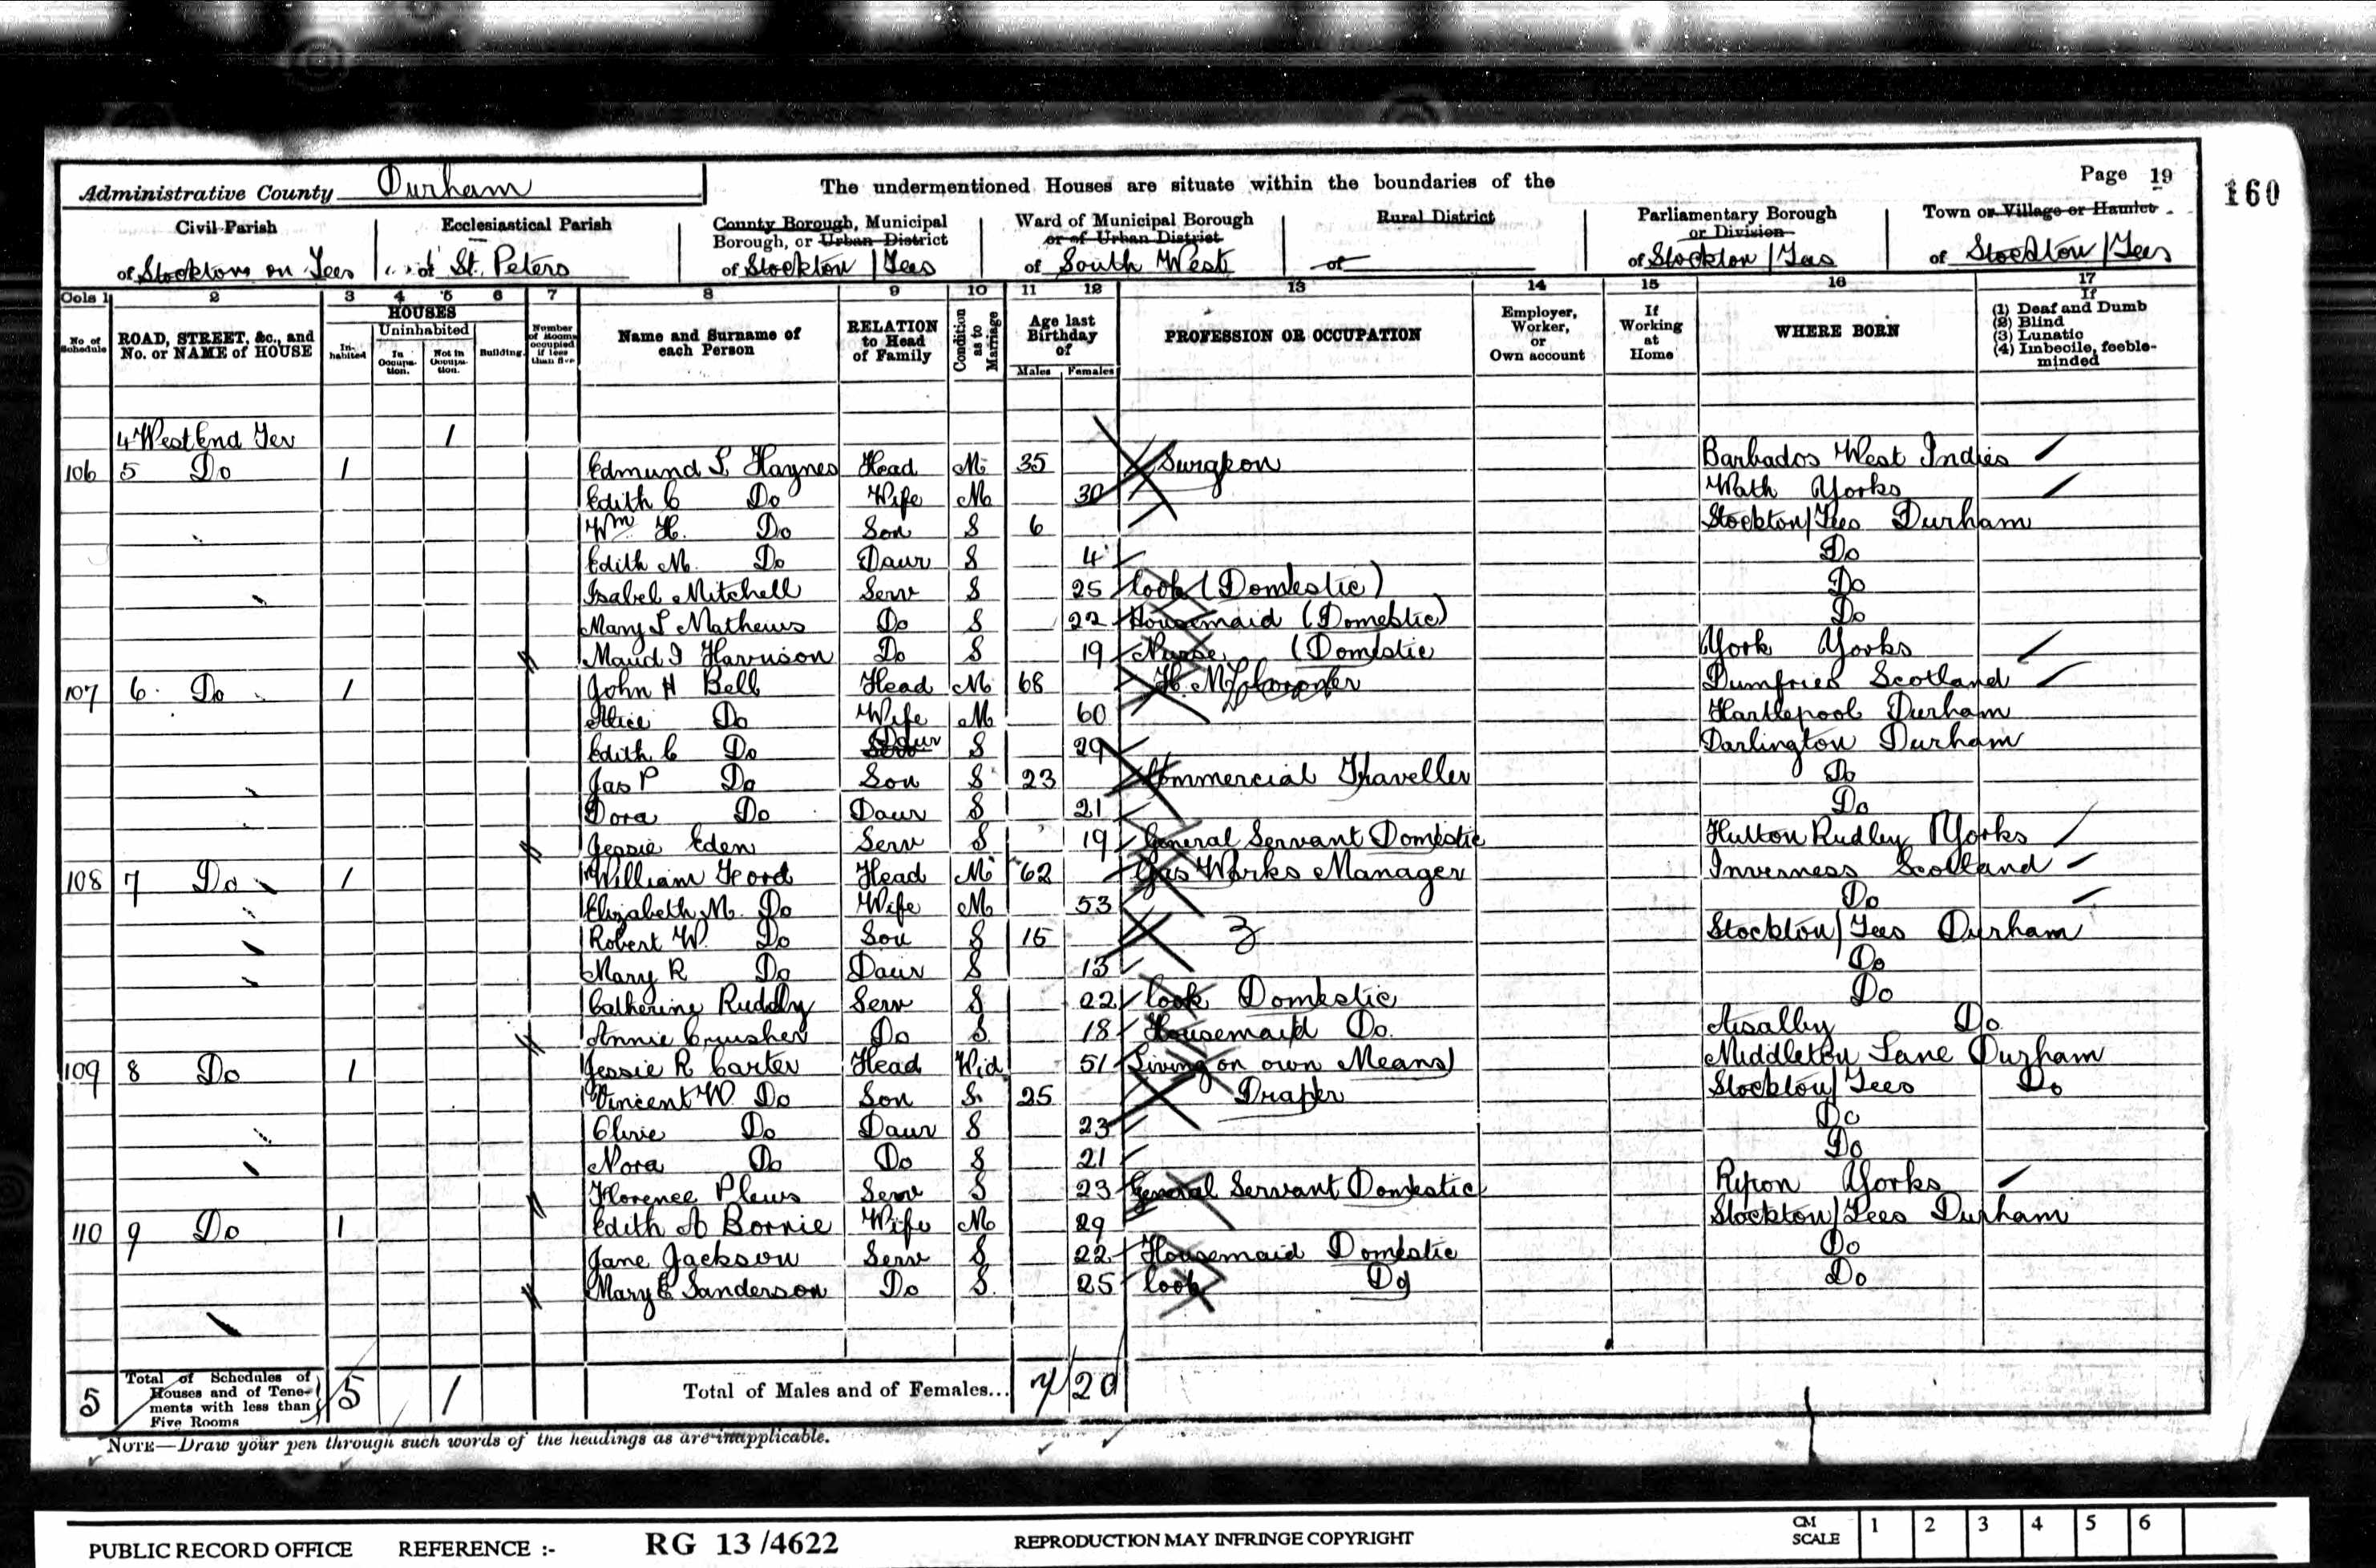 Administrative County Durham
The undermentioned Houses are situate within the boundaries of the
Page 19
160
Civil Parish
of Stockton on Tees
Ecclesiastical Parish
of St. Peters
County Borough, Municipal Borough, or Urban District
of Stockton / Tees
Ward of Municipal Borough or of Urban District
of South West
Rural District
of
Parliamentary Borough or Division
of Stockton / Tees
Town or Village or Hamlet
of Stockton / Tees
Cols 1 2 3 4 5 6 7 8 9 10 11 12 13 14 15 16 17
No. of Schedule
ROAD, STREET, &c., and No. or NAME of HOUSE
HOUSES
Inhabited
Uninhabited
In Occupation.
Not in Occupation.
Building.
Number of Rooms occupied if less than five
Name and Surname of each Person
RELATION to Head of Family
Condition as to Marriage
Age last Birthday of
Males Females
PROFESSION OR OCCUPATION
Employer, Worker, or Own account
If Working at Home
WHERE BORN
If
(1) Deaf and Dumb
(2) Blind
(3) Lunatic
(4) Imbecile, feeble-minded
4 West End Ter 1
106 5 Do 1 Edmund L Haynes Head M 35 Surgeon Barbados West Indies
Edith C Do Wife M 30 Wath Yorks
Wm H. Do Son S 6 Stockton/Tees Durham
Edith M. Do Daur S 4 Do
Isabel Mitchell Serv S 25 Cook (Domestic) Do
Mary L Mathews Do S 22 Housemaid (Domestic) Do
Maud I Harrison Do S 19 Nurse (Domestic York Yorks
107 6 Do 1 John H Bell Head M 68 H. M. Coroner Dumfries Scotland
Alice Do Wife M 60 Hartlepool Durham
Edith C Do Daur S 29 Darlington Durham
Jas P Do Son S 23 Commercial Traveller Do
Dora Do Daur S 21 Do
Jessie Eden Serv S 19 General Servant Domestic Hutton Rudley Yorks
108 7 Do 1 William Ford Head M 62 Gas Works Manager Inverness Scotland
Elizabeth M. Do Wife M 53 Do
Robert W. Do Son S 15 3 Stockton/Tees Durham
Mary R Do Daur S 13 Do
Catherine Ruddy Serv S 22 Cook Domestic Do
Annie Crusher Do S 18 Housemaid Do. Aisalby Do
109 8 Do 1 Jessie R Carter Head Wid 51 Living on own Means Middleton Lane Durham
Vincent W Do Son S 25 Draper Stockton/Tees Do
Do Daur S 23 Do
Nora Do Do S 21 Do
Florence Plews Serv S 23 General Servant Domestic Ripon Yorks
110 9 Do 1 Edith A Borrie Wife M 29 Stockton/Tees Durham
Jane Jackson Serv S 22 Housemaid Domestic Do
Mary E Sanderson Do S. 25 Cook Do Do
5 Total of Schedules of Houses and of Tenements with less than Five Rooms 5 1 Total of Males and of Females... 7 20
NOTE—Draw your pen through such words of the headings as are inapplicable.
PUBLIC RECORD OFFICE REFERENCE :- RG 13/4622 REPRODUCTION MAY INFRINGE COPYRIGHT CM SCALE 1 2 3 4 5 6